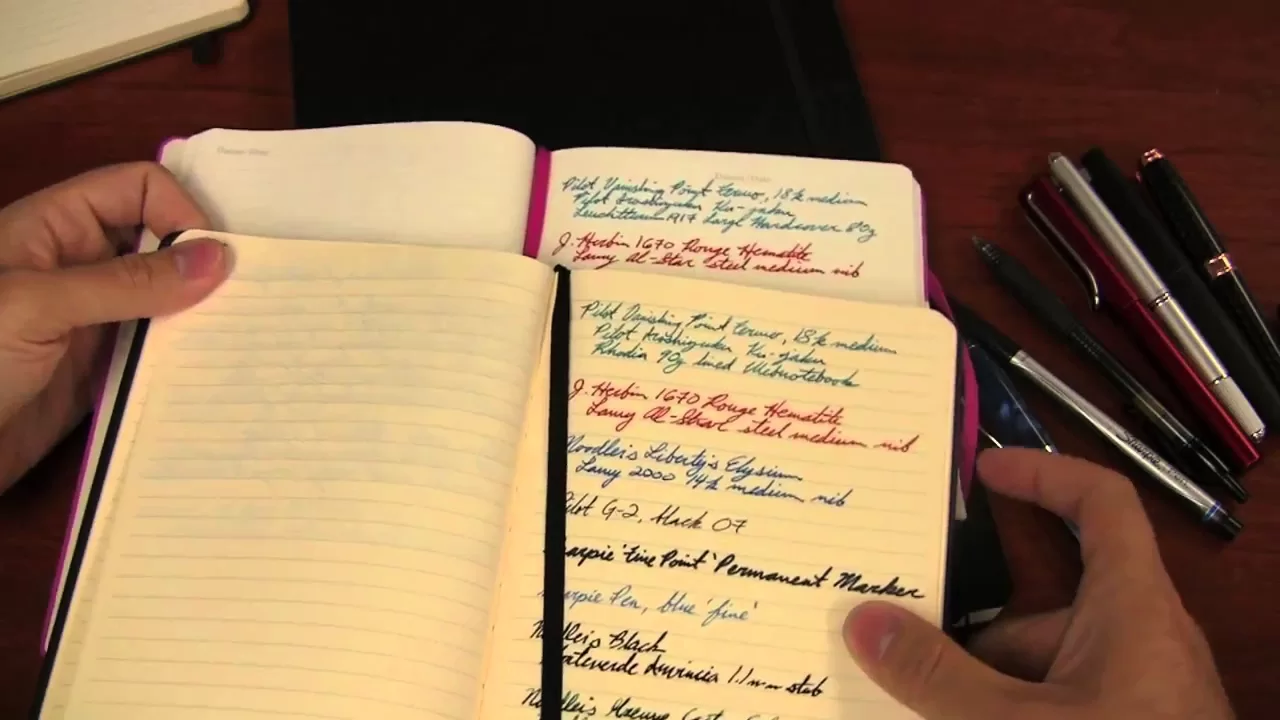 Pilot Vanishing Point Fermo, 18k medium
Pilot Iroshizuku Ku-jaku
Leuchtturm1917 Large Hardcover 80g
J. Herbin 1670 Rouge Hematite
Lamy Al-Star steel medium nib
Pilot Vanishing Point Fermo, 18k medium
Pilot Iroshizuku Ku-jaku
Rhodia 90g lined Webnotebook
J. Herbin 1670 Rouge Hematite
Lamy Al-Starl steel medium nib
Noodler's Liberty's Elysium
Lamy 2000 14k medium nib
Pilot G-2, black 07
arpie 'Fine Point' Permanent Marker
arpie Pen, blue 'fine'
Noodler's Black
Monteverde Invincia 1.1mm stub
Noodler's